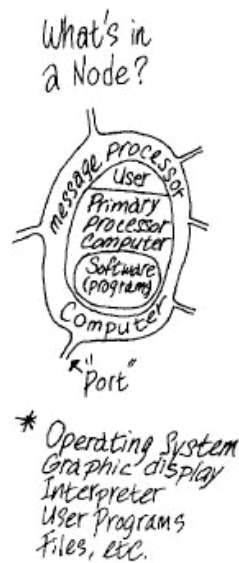 What's in
a Node?
message processor
User
Primary
Processor
Computer
Software
(programs)
Computer
"Port"
* Operating System
Graphic display
Interpreter
User Programs
Files, etc.